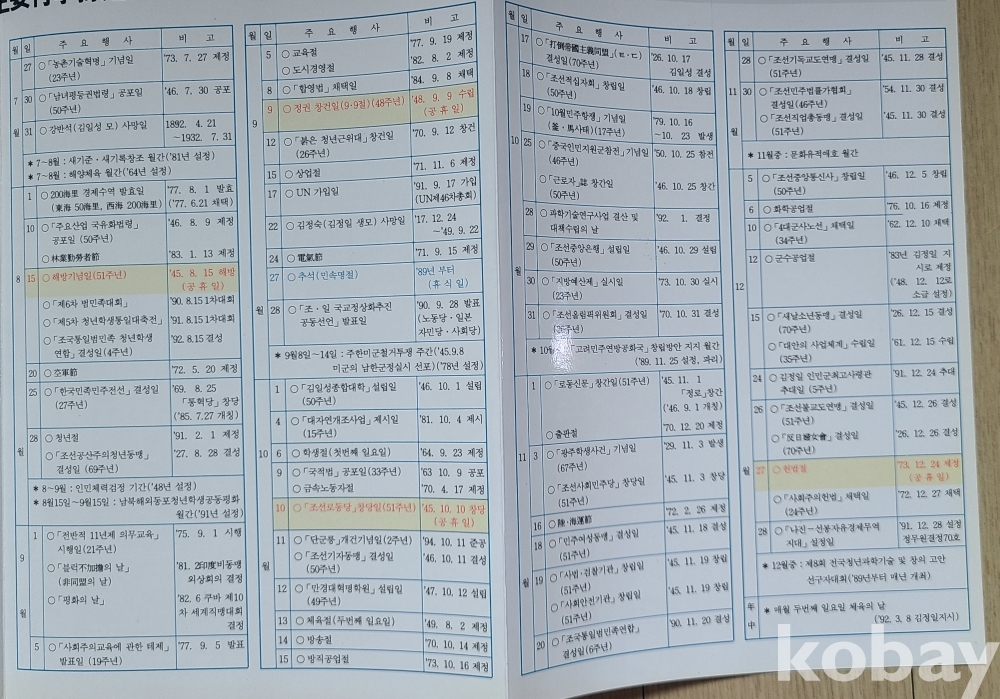 월 일 주요행사 비고
27 ○「농촌기술혁명」기념일 '73. 7. 27 제정
(23주년)
7 30 ○「남녀평등권법령」공포일 '46. 7. 30 공포
(50주년)
월 31 ○ 강반석(김일성 모) 사망일 1892. 4. 21
~1932. 7. 31
* 7~8월 : 새기준·새기록창조 월간('81년 설정)
* 7~8월 : 해양체육 월간('64년 설정)
1 ○ 200海里 경제수역 발효일 '77. 8. 1 발효
(東海 50海里, 西海 200海里) ('77. 6.21 채택)
10 ○「주요산업 국유화법령」 '46. 8. 9 제정
공포일 (50주년)
○ 林業勤勞者節 '83. 1. 13 제정
8 15 ○ 해방기념일(51주년) '45. 8. 15 해방
(공휴일)
○「제6차 범민족대회」 '90. 8.15 1차대회
○「제5차 청년학생통일대축전」 '91. 8.15 1차대회
○「조국통일범민족 청년학생 '92. 8.15 결성
연합」결성일(4주년)
20 ○ 空軍節 '72. 5. 20 제정
25 ○「한국민족민주전선」결성일 '69. 8. 25
(27주년) 「통혁당」창당
('85. 7.27 개칭)
28 ○ 청년절 '91. 2. 1 제정
월 ○「조선공산주의청년동맹」 '27. 8. 28 결성
결성일 (69주년)
* 8~9월 : 인민체력검정 기간('48년 설정)
* 8월15일~9월15일 : 남북해외동포청년학생공동평화
월간('91년 설정)
1 ○「전반적 11년제 의무교육」 '75. 9. 1 시행
시행일(21주년)
9 ○「블럭不加擔의 날」 '81. 2印度비동맹
(非同盟의 날) 외상회의 결정
○「평화의 날」 '82. 6 쿠바 제10
월 차 세계직맹대회
결정
5 ○「사회주의교육에 관한 테제」 '77. 9. 5 발표
발표일 (19주년)
월 일 주요행사 비고
5 ○ 교육절 '77. 9. 19 제정
○ 도시경영절 '82. 8. 2 제정
8 ○「합영법」채택일 '84. 9. 8 채택
9 9 ○ 정권 창건일(9·9절)(48주년) '48. 9. 9 수립
(공휴일)
12 ○「붉은 청년근위대」창건일 '70. 9. 12 창건
(26주년)
15 ○ 상업절 '71. 11. 6 제정
17 ○ UN 가입일 '91. 9. 17 가입
(UN제46차총회)
22 ○ 김정숙(김정일 생모) 사망일 '17. 12. 24
~'49. 9. 22
24 ○ 電氣節 '71. 9. 15 제정
27 ○ 추석(민속명절) '89년 부터
(휴식일)
월 28 ○「조·일 국교정상화추진 '90. 9. 28 발표
공동선언」발표일 (노동당·일본
자민당·사회당)
* 9월8일~14일 : 주한미군철거투쟁 주간('45.9.8
미군의 남한군정실시 선포)('78년 설정)
1 ○「김일성종합대학」설립일 '46. 10. 1 설립
(50주년)
4 ○「대자연개조사업」제시일 '81. 10. 4 제시
(15주년)
10 6 ○ 학생절(첫번째 일요일) '64. 9. 23 제정
9 ○「국적법」공포일(33주년) '63 10. 9 공포
○ 금속노동자절 '70. 4. 17 제정
10 ○「조선로동당」창당일(51주년) '45. 10. 10 창당
(공휴일)
11 ○「단군릉」개건기념일(2주년) '94. 10. 11 준공
○「조선기자동맹」결성일 '46. 10. 11 결성
(50주년)
12 ○「만경대혁명학원」설립일 '47. 10. 12 설립
(49주년)
월 13 ○ 체육절(두번째 일요일) '49. 8. 2 제정
14 ○ 방송절 '70. 10. 14 제정
15 ○ 방직공업절 '73. 10. 16 제정
월 일 주요행사 비고
17 ○「打倒帝國主義同盟」(ㅌ·ㄷ) '26. 10. 17
결성일(70주년) 김일성 결성
18 ○「조선적십자회」창립일 '46. 10. 18 창립
(50주년)
19 ○「10월민주항쟁」기념일 '79. 10. 16
(釜·馬사태)(17주년) ~10. 23 발생
10 25 ○「중국인민지원군참전」기념일 '50. 10. 25 참전
(46주년)
○「근로자」誌 창간일 '46. 10. 25 창간
(50주년)
28 ○ 과학기술연구사업 결산 및 '92. 1. 결정
대책수립의 날
29 ○「조선중앙은행」설립일 '46. 10. 29 설립
월 (50주년)
30 ○「지방예산제」실시일 '73. 10. 30 실시
(23주년)
31 ○「조선올림픽위원회」결성일 '70. 10. 31 결성
* 10월 「고려민주연방공화국」창립방안 지지 월간
('89. 11. 25 설정, 파리)
1 ○「로동신문」창간일(51주년) '45. 11. 1
「정로」창간
('46. 9. 1 개칭)
○ 출판절 '70. 12. 20 제정
11 3 ○「광주학생사건」기념일 '29. 11. 3 발생
(67주년)
○「조선사회민주당」창당일 '45. 11. 3 창당
(51주년)
16 ○ 陸·海運節 '72. 2. 26 제정
18 ○「민주여성동맹」결성일 '45. 11. 18 결성
(51주년)
월 19 ○「사법·검찰기관」창립일 '45. 11. 19 창립
(51주년)
○「사회안전기관」창립일 '45. 11. 19 창립
(51주년)
20 ○「조국통일범민족연합」 '90. 11. 20 결성
결성일(6주년)
월 일 주요행사 비고
28 ○「조선기독교도연맹」결성일 '45. 11. 28 결성
(51주년)
11 30 ○「조선민주법률가협회」 '54. 11. 30 결성
결성일(46주년)
○「조선직업총동맹」결성일 '45. 11. 30 결성
월 (51주년)
* 11월중 : 문화유적애호 월간
5 ○「조선중앙통신사」창립일 '46. 12. 5 창립
(50주년)
6 ○ 화학공업절 '76. 10. 16 제정
10 ○「4대군사노선」채택일 '62. 12. 10 채택
(34주년)
12 ○ 군수공업절 '83년 김정일 지
시로 제정
12 ('48. 12. 12로
소급 설정)
15 ○「새날소년동맹」결성일 '26. 12. 15 결성
(70주년)
○「대안의 사업체계」수립일 '61. 12. 15 수립
(35주년)
24 ○ 김정일 인민군최고사령관 '91. 12. 24 추대
추대일 (5주년)
26 ○「조선불교도연맹」결성일 '45. 12. 26 결성
(51주년)
○「反日婦女會」결성일 '26. 12. 26 결성
(70주년)
월 27 ○ 헌법절 '73. 12. 24 제정
(공휴일)
○「사회주의헌법」채택일 '72. 12. 27 채택
(24주년)
28 ○「나진-선봉자유경제무역 '91. 12. 28 설정
지대」설정일 정무원결정70호
* 12월중 : 제8회 전국청년과학기술 및 창의 고안
선구자대회('89년부터 매년 개최)
年 * 매월 두번째 일요일 체육의 날
中 ('92. 3. 8 김정일지시)
kobay